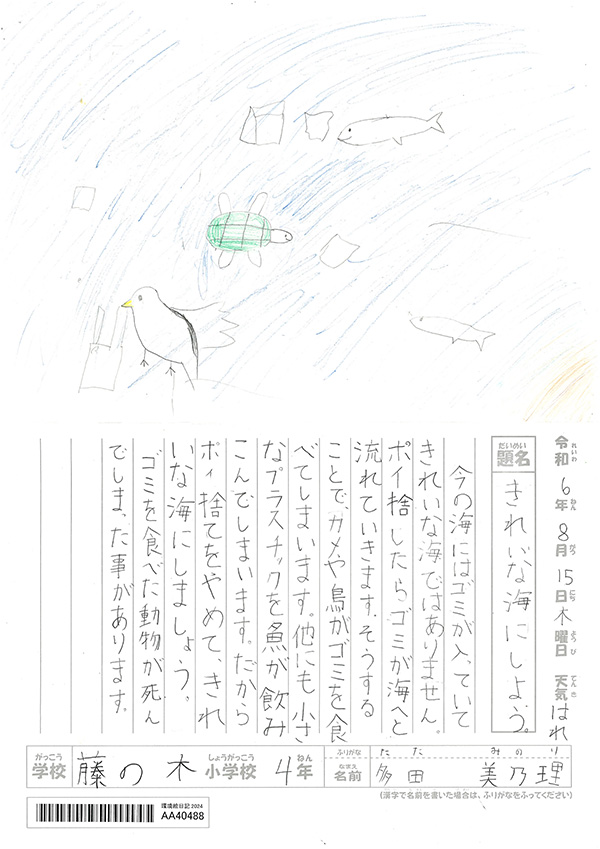 令和 6年 8月 15日 木曜日 天気 はれ
れいわ ねん がつ にち ようび てんき
だいめい
題名 きれいな海にしよう。
今の海にはゴミが入っていて
きれいな海ではありません。
ポイ捨したらゴミが海へと
流れていきます。そうする
ことで、カメや鳥がゴミを食
べてしまいます。他にも小さ
なプラスチックを魚が飲み
こんでしまいます。だから
ポイ捨てをやめて、きれ
いな海にしましょう。
ゴミを食べた動物が死ん
でしまった事があります。
がっこう しょうがっこう ねん
学校 藤の木 小学校 4年
ふりがな ただ みのり
なまえ
名前 多田 美乃理
(漢字で名前を書いた場合は、ふりがなをふってください)
環境絵日記2024
AA40488